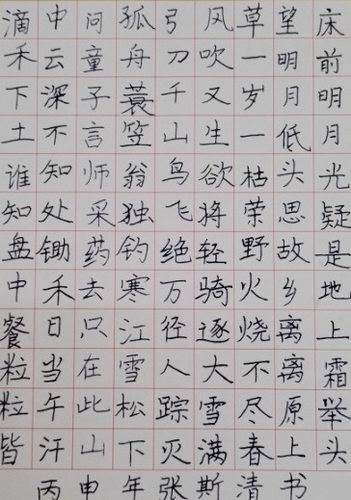 床前明月光疑是地上霜举头
望明月低头思故乡离离原上
草一岁一枯荣野火烧不尽春
风吹又生欲将轻骑逐大雪满
弓刀千山鸟飞绝万径人踪灭
孤舟蓑笠翁独钓寒江雪松下
问童子言师采药去只在此山
中云深不知处锄禾日当午汗
滴禾下土谁知盘中餐粒粒皆
丙申年张斯清书